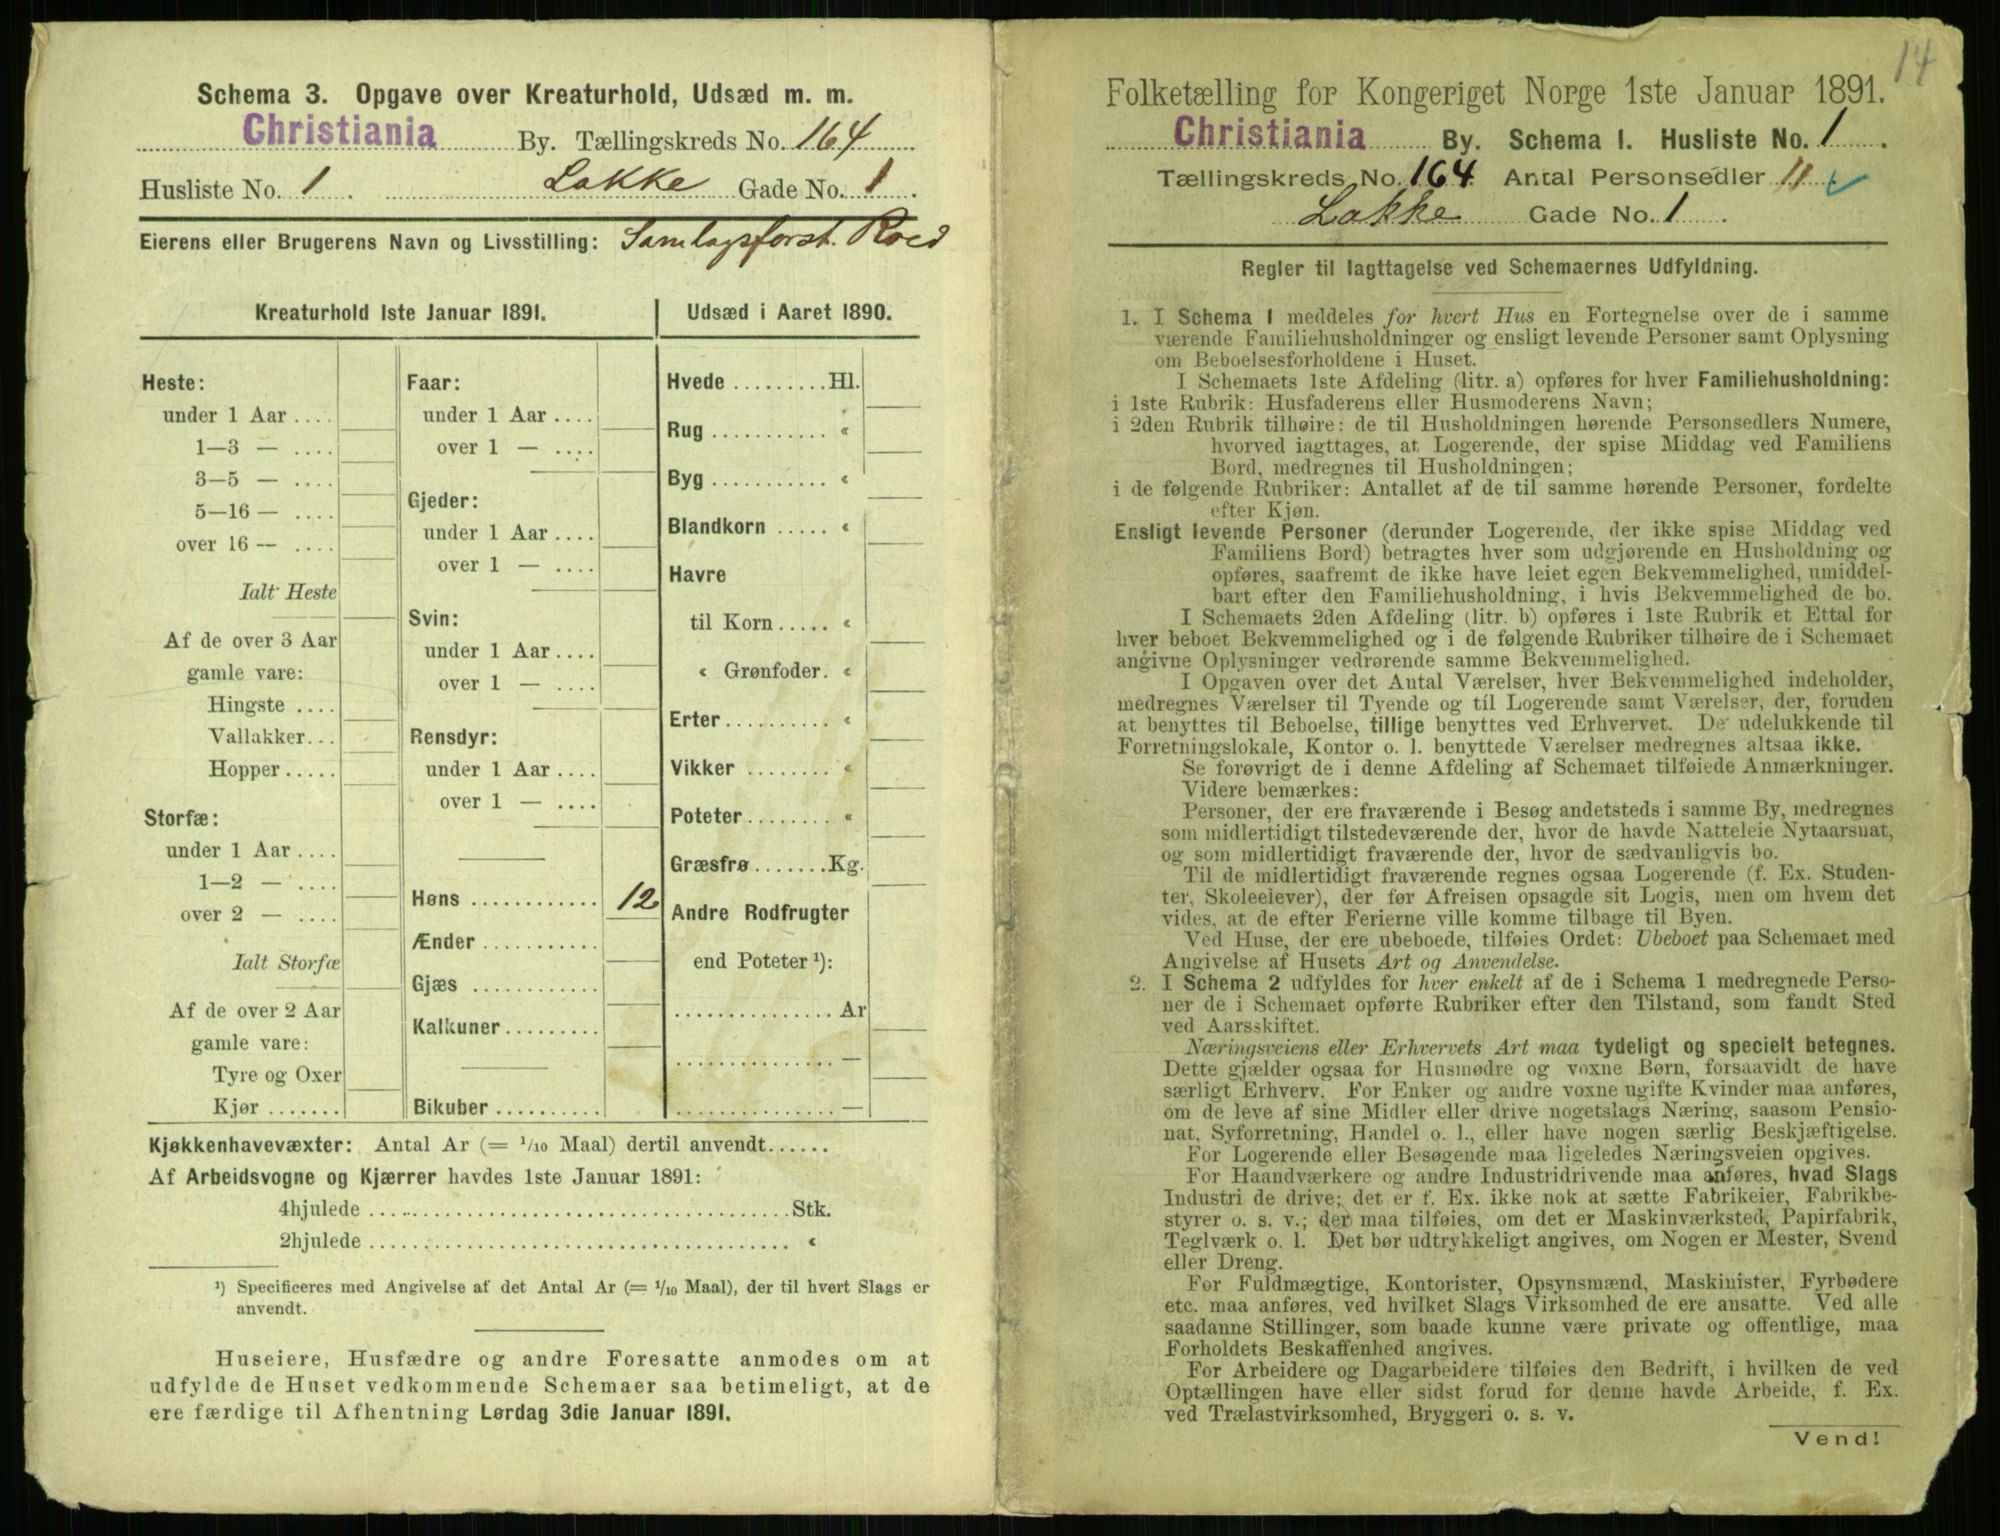 Schema 3. Opgave over Kreaturhold, Udsæd m. m.
Christiania By. Tællingskreds No. 164
Husliste No. 1 Lakke Gade No. 1.
Eierens eller Brugerens Navn og Livsstilling: Samlagsforst. Roed
Kreaturhold 1ste Januar 1891.
Heste:
under 1 Aar ....
1—3 — ....
3—5 — ....
5—16 — ....
over 16 — ....
Ialt Heste
Af de over 3 Aar
gamle vare:
Hingste ....
Vallakker...
Hopper.....
Storfæ:
under 1 Aar ....
1—2 — ....
over 2 — ....
Ialt Storfæ
Af de over 2 Aar
gamle vare:
Tyre og Oxer
Kjør .......
Faar:
under 1 Aar ....
over 1 — ....
Gjeder:
under 1 Aar ....
over 1 — ....
Svin:
under 1 Aar ....
over 1 — ....
Rensdyr:
under 1 Aar ....
over 1 — ....
Høns ............ 12
Ænder ...........
Gjæs ............
Kalkuner.........
Bikuber ..........
Udsæd i Aaret 1890.
Hvede .........Hl.
Rug ........... «
Byg ........... «
Blandkorn ..... «
Havre
til Korn ..... «
« Grønfoder. «
Erter ......... «
Vikker ........ «
Poteter........ «
Græsfrø .......Kg.
Andre Rodfrugter
end Poteter ¹):
............... Ar
............... —
............... —
Kjøkkenhavevæxter: Antal Ar (= 1/10 Maal) dertil anvendt......
Af Arbeidsvogne og Kjærrer havdes 1ste Januar 1891:
4hjulede ........................................Stk.
2hjulede ........................................ «
¹) Specificeres med Angivelse af det Antal Ar (= 1/10 Maal), der til hvert Slags er
anvendt.
Huseiere, Husfædre og andre Foresatte anmodes om at
udfylde de Huset vedkommende Schemaer saa betimeligt, at de
ere færdige til Afhentning Lørdag 3die Januar 1891.
14
Folketælling for Kongeriget Norge 1ste Januar 1891.
Christiania By. Schema I. Husliste No. 1.
Tællingskreds No. 164. Antal Personsedler 11 ✓
Lakke Gade No. 1.
Regler til Iagttagelse ved Schemaernes Udfyldning.
1. I Schema I meddeles for hvert Hus en Fortegnelse over de i samme
værende Familiehusholdninger og ensligt levende Personer samt Oplysning
om Beboelsesforholdene i Huset.
I Schemaets 1ste Afdeling (litr. a) opføres for hver Familiehusholdning:
i 1ste Rubrik: Husfaderens eller Husmoderens Navn;
i 2den Rubrik tilhøire: de til Husholdningen hørende Personsedlers Numere,
hvorved iagttages, at Logerende, der spise Middag ved Familiens
Bord, medregnes til Husholdningen;
i de følgende Rubriker: Antallet af de til samme hørende Personer, fordelte
efter Kjøn.
Ensligt levende Personer (derunder Logerende, der ikke spise Middag ved
Familiens Bord) betragtes hver som udgjørende en Husholdning og
opføres, saafremt de ikke have leiet egen Bekvemmelighed, umiddel-
bart efter den Familiehusholdning, i hvis Bekvemmelighed de bo.
I Schemaets 2den Afdeling (litr. b) opføres i 1ste Rubrik et Ettal for
hver beboet Bekvemmelighed og i de følgende Rubriker tilhøire de i Schemaet
angivne Oplysninger vedrørende samme Bekvemmelighed.
I Opgaven over det Antal Værelser, hver Bekvemmelighed indeholder,
medregnes Værelser til Tyende og til Logerende samt Værelser, der, foruden
at benyttes til Beboelse, tillige benyttes ved Erhvervet. De udelukkende til
Forretningslokale, Kontor o. l. benyttede Værelser medregnes altsaa ikke.
Se forøvrigt de i denne Afdeling af Schemaet tilføiede Anmærkninger.
Videre bemærkes:
Personer, der ere fraværende i Besøg andetsteds i samme By, medregnes
som midlertidigt tilstedeværende der, hvor de havde Natteleie Nytaarsnat,
og som midlertidigt fraværende der, hvor de sædvanligvis bo.
Til de midlertidigt fraværende regnes ogsaa Logerende (f. Ex. Studen-
ter, Skoleelever), der før Afreisen opsagde sit Logis, men om hvem det
vides, at de efter Ferierne ville komme tilbage til Byen.
Ved Huse, der ere ubeboede, tilføies Ordet: Ubeboet paa Schemaet med
Angivelse af Husets Art og Anvendelse.
2. I Schema 2 udfyldes for hver enkelt af de i Schema 1 medregnede Perso-
ner de i Schemaet opførte Rubriker efter den Tilstand, som fandt Sted
ved Aarsskiftet.
Næringsveiens eller Erhvervets Art maa tydeligt og specielt betegnes.
Dette gjælder ogsaa for Husmødre og voxne Børn, forsaavidt de have
særligt Erhverv. For Enker og andre voxne ugifte Kvinder maa anføres,
om de leve af sine Midler eller drive nogetslags Næring, saasom Pensio-
nat, Syforretning, Handel o. l., eller have nogen særlig Beskjæftigelse.
For Logerende eller Besøgende maa ligeledes Næringsveien opgives.
For Haandværkere og andre Industridrivende maa anføres, hvad Slags
Industri de drive; det er f. Ex. ikke nok at sætte Fabrikeier, Fabrikbe-
styrer o. s. v.; der maa tilføies, om det er Maskinværksted, Papirfabrik,
Teglværk o. l. Det bør udtrykkeligt angives, om Nogen er Mester, Svend
eller Dreng.
For Fuldmægtige, Kontorister, Opsynsmænd, Maskinister, Fyrbødere
etc. maa anføres, ved hvilket Slags Virksomhed de ere ansatte. Ved alle
saadanne Stillinger, som baade kunne være private og offentlige, maa
Forholdets Beskaffenhed angives.
For Arbeidere og Dagarbeidere tilføies den Bedrift, i hvilken de ved
Optællingen have eller sidst forud for denne havde Arbeide, f. Ex.
ved Trælastvirksomhed, Bryggeri o. s. v.
Vend!